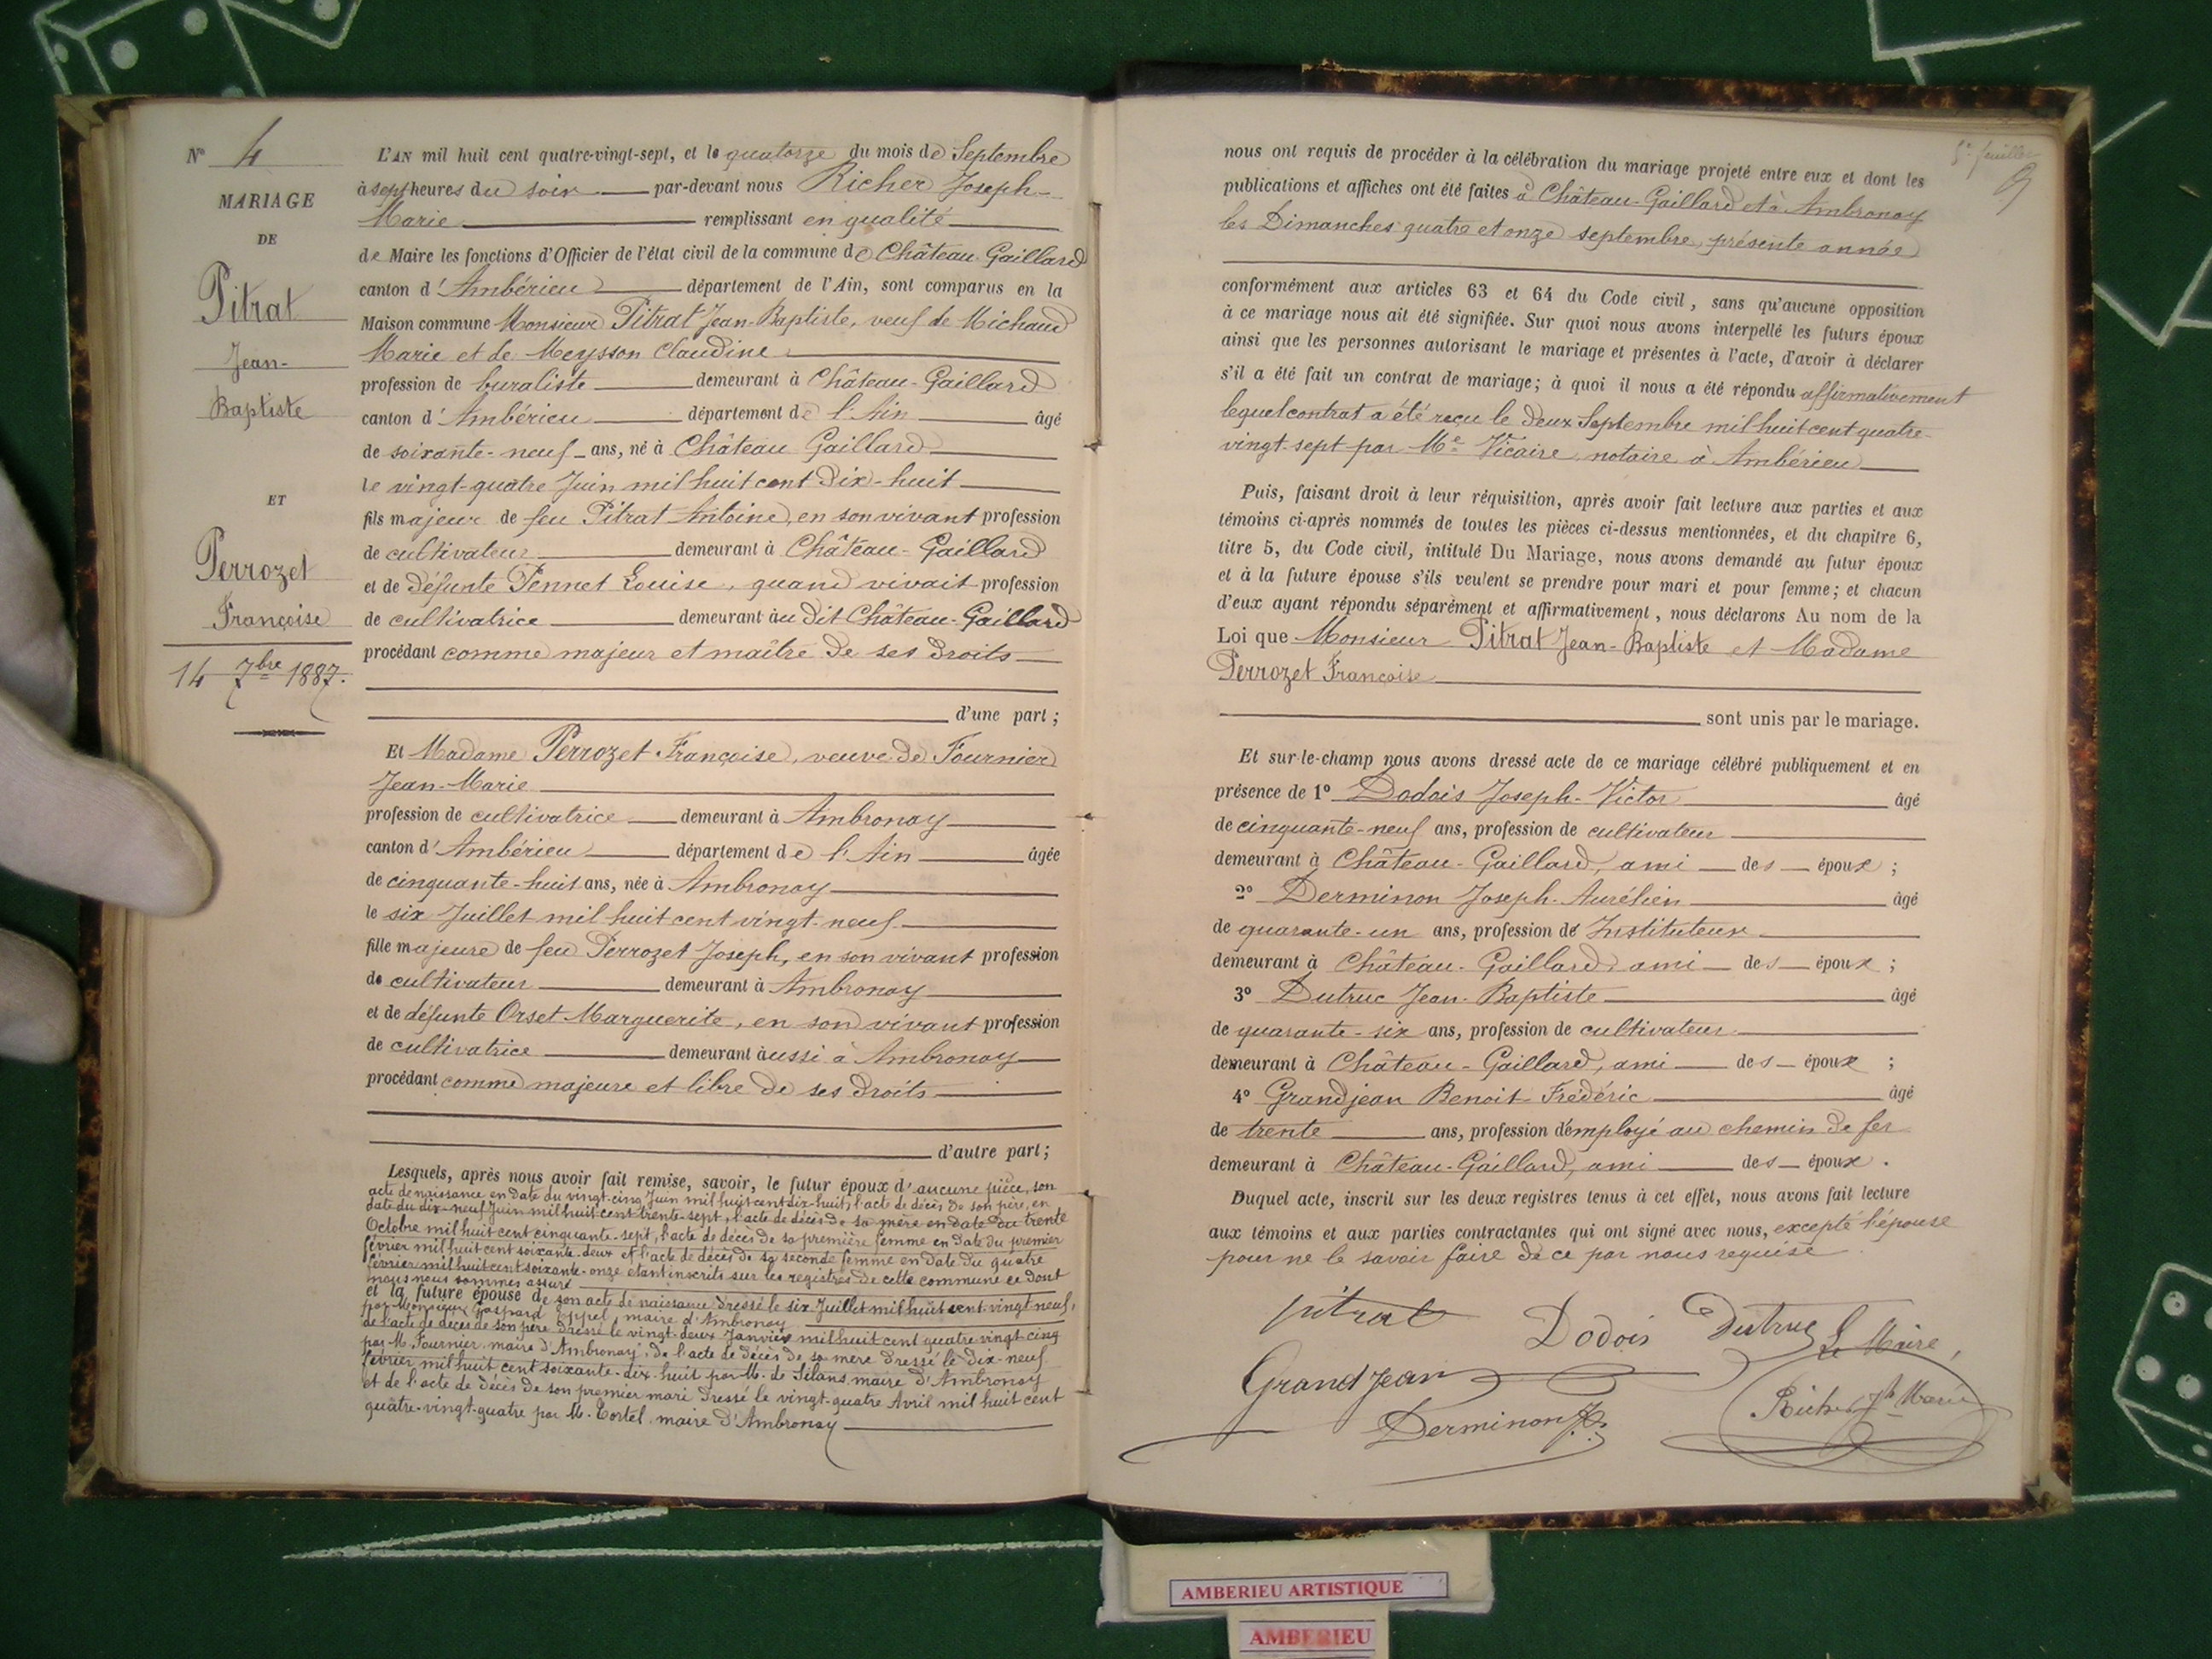 N° 4
MARIAGE
DE
Pitrat
Jean-
Baptiste
ET
Perrozet
Françoise
14 7bre 1887.
L'AN mil huit cent quatre-vingt-sept, et le quatorze du mois de Septembre
à sept heures du soir par-devant nous Richer Joseph-
Marie remplissant en qualité
de Maire les fonctions d'Officier de l'état civil de la commune de Château Gaillard
canton d'Ambérieu département de l'Ain, sont comparus en la
Maison commune Monsieur Pitrat Jean-Baptiste, veuf de Michaud
Marie et de Meysson Claudine
profession de buraliste demeurant à Château-Gaillard
canton d'Ambérieu département de l'Ain âgé
de soixante-neuf ans, né à Château Gaillard
le vingt-quatre Juin mil huit cent dix-huit
fils majeur de feu Pitrat Antoine, en son vivant profession
de cultivateur demeurant à Château-Gaillard
et de défunte Pennet Louise, quand vivait profession
de cultivatrice demeurant au dit Château-Gaillard
procédant comme majeur et maître de ses droits
d'une part;
Et Madame Perrozet Françoise, veuve de Fournier
Jean-Marie
profession de cultivatrice demeurant à Ambronay
canton d'Ambérieu département de l'Ain âgée
de cinquante-huit ans, née à Ambronay
le six Juillet mil huit cent vingt-neuf
fille majeure de feu Perrozet Joseph, en son vivant profession
de cultivateur demeurant à Ambronay
et de défunte Orset Marguerite, en son vivant profession
de cultivatrice demeurant aussi à Ambronay
procédant comme majeure et libre de ses droits
d'autre part;
Lesquels, après nous avoir fait remise, savoir, le futur époux d'aucune pièce, son
acte de naissance en date du vingt-cinq Juin mil huit cent dix-huit, l'acte de décès de son père, en
date du dix-neuf Juin mil huit cent trente-sept, l'acte de décès de sa mère en date du trente
Octobre mil huit cent cinquante-sept, l'acte de décès de sa première femme en date du premier
février mil huit cent soixante-deux et l'acte de décès de sa seconde femme en date du quatre
février mil huit cent soixante-onze étant inscrits sur les registres de cette commune ce dont
nous nous sommes assuré
et la future épouse de son acte de naissance dressé le six Juillet mil huit cent vingt neuf,
par Monsieur Gaspard maire d'Ambronay
de l'acte de décès de son père dressé le vingt-deux Janvier mil huit cent quatre vingt cinq
par M. Fournier, maire d'Ambronay, de l'acte de décès de sa mère dressé le dix-neuf
février mil huit cent soixante-dix-huit par M. de Silans, maire d'Ambronay
et de l'acte de décès de son premier mari dressé le vingt-quatre Avril mil huit cent
quatre-vingt-quatre par M. Tortel, maire d'Ambronay
5e feuillet
nous ont requis de procéder à la célébration du mariage projeté entre eux et dont les
publications et affiches ont été faites à Château-Gaillard et à Ambronay
les Dimanches quatre et onze septembre, présente année
conformément aux articles 63 et 64 du Code civil, sans qu'aucune opposition
à ce mariage nous ait été signifiée. Sur quoi nous avons interpellé les futurs époux
ainsi que les personnes autorisant le mariage et présentes à l'acte, d'avoir à déclarer
s'il a été fait un contrat de mariage; à quoi il nous a été répondu affirmativement
lequel contrat a été reçu le deux Septembre mil huit cent quatre-
vingt-sept par Me Vicaire, notaire à Ambérieu
Puis, faisant droit à leur réquisition, après avoir fait lecture aux parties et aux
témoins ci-après nommés de toutes les pièces ci-dessus mentionnées, et du chapitre 6,
titre 5, du Code civil, intitulé Du Mariage, nous avons demandé au futur époux
et à la future épouse s'ils veulent se prendre pour mari et pour femme; et chacun
d'eux ayant répondu séparément et affirmativement, nous déclarons Au nom de la
Loi que Monsieur Pitrat Jean-Baptiste et Madame
Perrozet Françoise
sont unis par le mariage.
Et sur-le-champ nous avons dressé acte de ce mariage célébré publiquement et en
présence de 1° Dodois Joseph-Victor âgé
de cinquante-neuf ans, profession de cultivateur
demeurant à Château-Gaillard, ami des époux ;
2° Derminon Joseph-Aurélien âgé
de quarante-un ans, profession de Instituteur
demeurant à Château-Gaillard, ami des époux ;
3° Dutruc Jean-Baptiste âgé
de quarante-six ans, profession de cultivateur
demeurant à Château-Gaillard, ami des époux ;
4° Grandjean Benoit Frédéric âgé
de trente ans, profession d'employé au chemin de fer
demeurant à Château-Gaillard, ami des époux.
Duquel acte, inscrit sur les deux registres tenus à cet effet, nous avons fait lecture
aux témoins et aux parties contractantes qui ont signé avec nous, excepté l'épouse
pour ne le savoir faire de ce par nous requise
pitrat Dodois Dutruc Le Maire,
Grandjean Richer Jh Marie
Derminon
AMBERIEU ARTISTIQUE
AMBERIEU